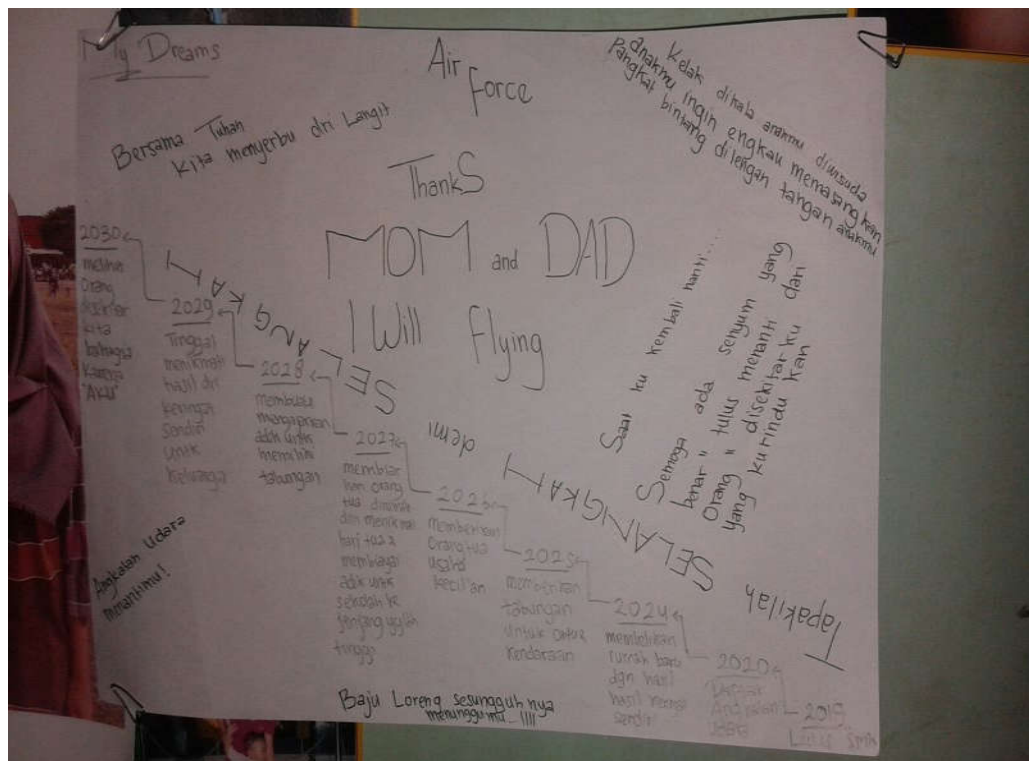 My Dreams
Air
Force
Kelak dikala anakmu diwisuda
anakmu ingin engkau memasangkan
Pangkat bintang dilengan tangan anakmu
Bersama Tuhan
Kita menyerbu dri Langit
Thanks
MOM and DAD
I Will Flying
Saat ku kembali nanti....
Semoga ada senyum yang
benar" tulus menanti
Orang" disekitar ku dari
yang kurindu kan
Tapakilah
SELANGKAH demi
SELANGKAH
2030
melihat
orang
disekitar
kita
bahagia
karena
"AKU"
2029
Tinggal
menikmati
hasil dri
keringat
sendiri
untk
keluarga
2028
membuat
adik untk
memiliki
tabungan
2027
membiar
kan orang
tua dirumah
dan menikmati
hari tua 2
membiayai
adik untk
sekolah ke
jenjang yg lbh
tinggi
2026
memberikan
Orang tua
usaha
kecil'an
2025
memberikan
tabungan
untuk
kendaraan
2024
membelikan
rumah baru
dgn hasil
hasil
sendiri
2020
2019
Lulus SMA
Angkatan Udara
menantimu!
Baju Loreng sesungguhnya
menunggumu...!!!!